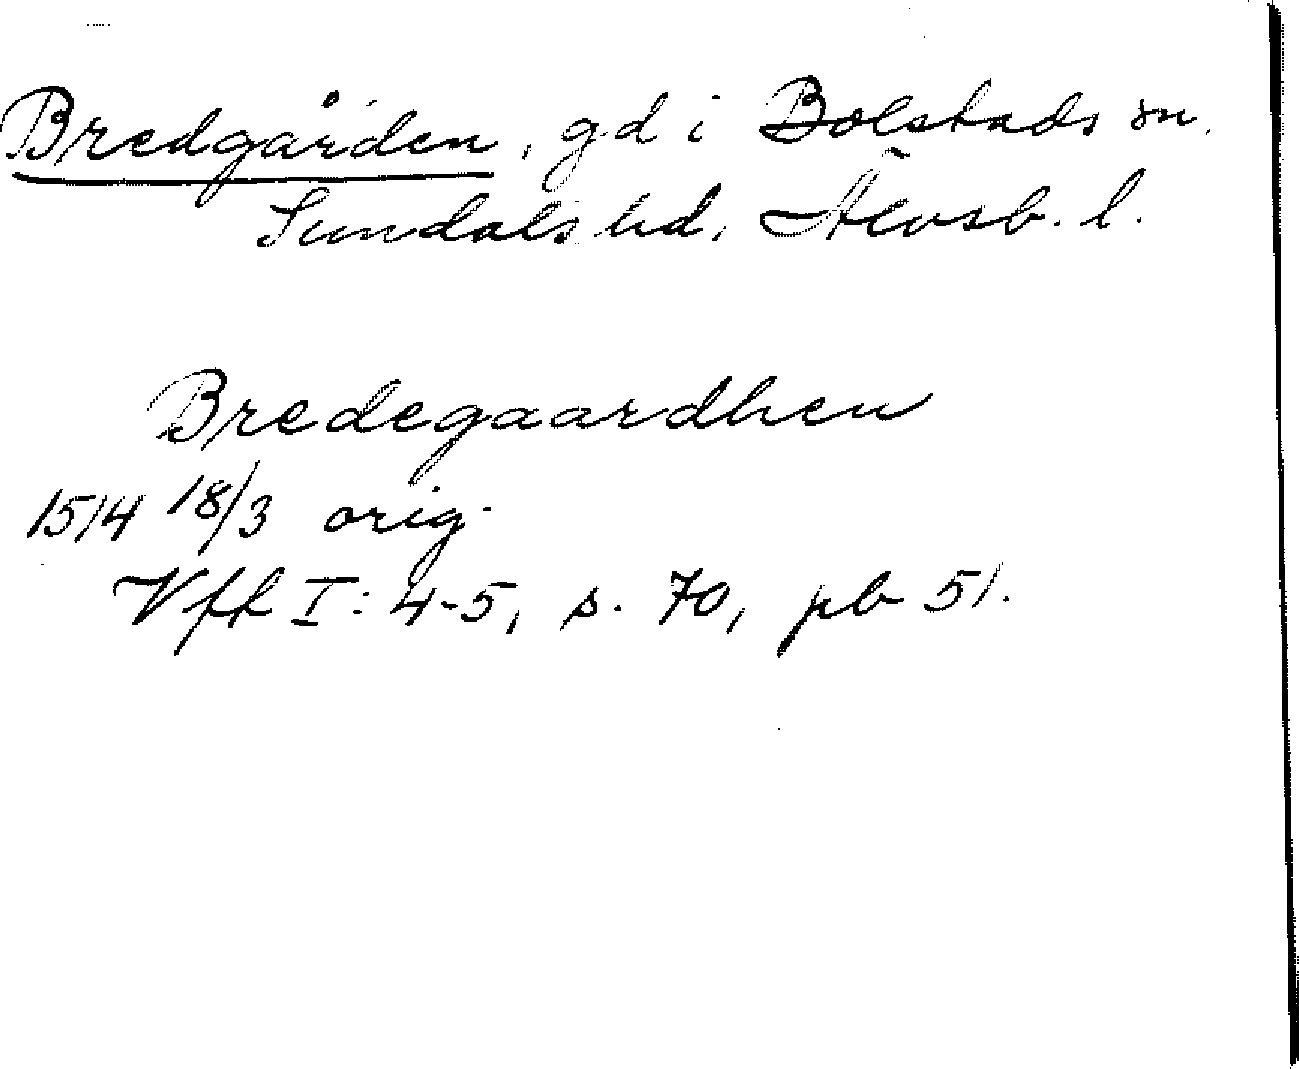 Bredgården, gd i Bolstads sn.
Sundals hd, Älvsb. l.
Bredegaardhen
1514 18/3 orig.
Vffk I: 4-5, s. 70, pb 51.